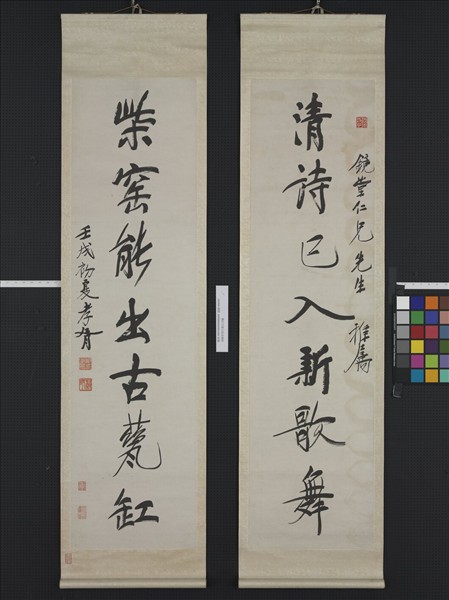 鏡堂仁兄先生 雅屬
清詩已入新歌舞
柴窯能出古缸
壬戌初夏孝胥